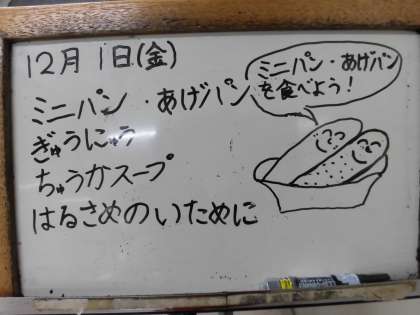 12月1日(金)
ミニパン・あげパン
ぎゅうにゅう
ちゅうかスープ
はるさめのいために
ミニパン・あげパン
を食べよう!